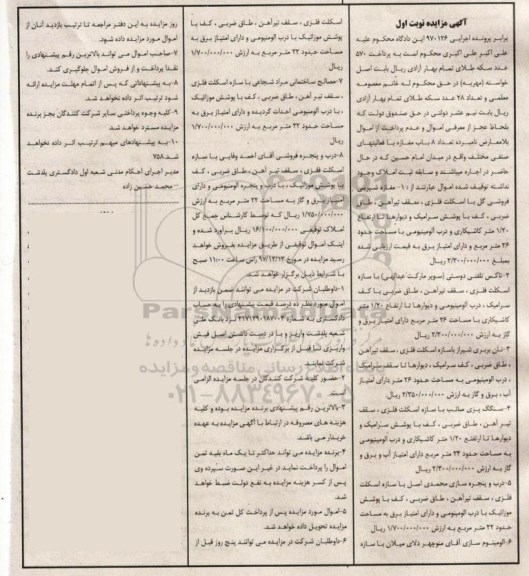 آگهی مزایده نوبت اول
برابر پرونده اجرایی ۹۷۰۱۲۶ این دادگاه محکوم علیه
علی اکبر علی اکبری محکوم است به پرداخت ۵۷۰
عدد سکه طلای تمام بهار آزادی ریال بابت اصل
خواسته (مهریه) در حق محکوم له خانم معصومه
معلمی و تعداد ۲۸ عدد سکه طلای تمام بهار آزادی
ریال بابت نیم عشر دولتی در حق صندوق دولت که
بلحاظ عجز از معرفی اموال و عدم پرداخت از اموال
بلامعارض نامبرده تعداد ۸ باب مغازه با فعالیتهای
صنفی مختلف واقع در میدان امام حسین که در حال
حاضر در اجاره میباشند و سابقه ثبت املاک وجود
نداشته توقیف شده اموال عبارتند از : ۱- مغازه شیرینی
فروشی گل با اسکلت فلزی ، سقف تیرآهن ، طاق
ضربی ، کف با پوشش سرامیک و دیوارها تا ارتفاع
۱/۲۰ متر کاشیکاری و درب الومینیومی با مساحت حدود
۲۶ متر مربع و دارای امتیاز برق به قیمت ارزیابی شده
بمبلغ ۲/۳۰۰/۰۰۰/۰۰۰ ریال
۲-تاکسی تلفنی دوستی (سوپر مارکت عبدالهی) با سازه
اسکلت فلزی ، سقف تیر آهن ، طاق ضربی با کف
سرامیک ، درب آلومینیومی و دیوارها تا ارتفاع ۱/۲۰ متر
کاشیکاری با مساحت ۲۶ متر مربع دارای امتیاز برق و
گاز به ارزش ۲/۳۰۰/۰۰۰/۰۰۰ ریال
۳-نان بربری شیراز باسازه اسکلت فلزی ، سقف تیرآهن
، طاق ضربی ، کف سرامیک ، دیوارها تا سقف سرامیک
، درب آلومینیومی به مساحت حدود ۲۶ متر دارای امتیاز
آب ، برق و گاز به ارزش ۲/۳۵۰/۰۰۰/۰۰۰ ریال
۴-سنگک پزی صائب با سازه اسکلت فلزی ، سقف
تیر آهن ، طاق ضربی ، کف با پوشش سرامیک و
دیوارها تا ارتفاع ۱/۲۰ متر کاشیکاری و درب آلومینیومی
به مساحت حدود ۲۴ متر مربع دارای امتیاز آب و برق و
گاز به ارزش ۲/۳۰۰/۰۰۰/۰۰۰ ریال
۵-درب و پنجره سازی محمدی اصل با سازه اسکلت
فلزی ، سقف تیرآهن ، طاق ضربی ، کف با پوشش
موزائیک با درب الومینیومی و دارای امتیاز برق به مساحت
حدود ۲۲ متر مربع به ارزش ۱/۷۰۰/۰۰۰/۰۰۰ ریال
۶-آلومینیوم سازی آقای منوچهر دلای میلان با سازه
اسکلت فلزی ، سقف تیرآهن ، طاق ضربی ، کف با
پوشش موزائیک با درب آلومینیومی و دارای امتیاز برق به
مساحت حدود ۲۲ متر مربع به ارزش ۱/۷۰۰/۰۰۰/۰۰۰
ریال
۷-مصالح ساختمانی مراد شجاعی با سازه اسکلت فلزی
، سقف تیر آهن ، طاق ضربی ، کف با پوشش موزائیک
، با درب آلومینیومی احداث گردیده و دارای امتیاز برق به
مساحت حدود ۲۲ متر مربع به ارزش ۱/۷۰۰/۰۰۰/۰۰۰
ریال
۸-درب و پنجره فروشی آقای احمد وفایی با سازه
اسکلت فلزی ، سقف تیر آهن ، طاق ضربی ، کف
با پوشش موزائیک ، با درب و پنجره آلومینیومی و دارای
امتیاز برق و گاز به مساحت ۲۲ متر مربع به ارزش
۱/۷۵۰/۰۰۰/۰۰۰ ریال که توسط کارشناس جمع کل
املاک توقیفی ۱۶/۱۰۰/۰۰۰/۰۰۰ ریال برآورد شده و
اینک اموال توقیفی از طریق مزایده بفروش خواهد
رسید مزایده در مورخ ۹۷/۱۲/۱۳ راس ساعت ۱۱:۰۰ صبح
با شرایط ذیل برگزار خواهد شد.
۱-داوطلبان شرکت در مزایده می توانند ضمن بازدید از
اموال مورد نظر ده درصد قیمت پیشنهادی را به حساب
دادگستری به شماره بانک ملی
شعبه پلدشت واریز و با در دست داشتن اصل فیش
واریزی تا قبل از برگزاری مزایده در جلسه مزایده
شرکت نمایند
۲-حضور کلیه شرکت کنندگان در جلسه مزایده الزامی
است
۳-بالاترین رقم پیشنهادی برنده مزایده بوده و کلیه
هزینه های مصروفه در ارتباط با آگهی مزایده به عهده
خریدار می باشد
۴-برنده مزایده می تواند حداکثر تا یک ماه بقیه ثمن
اموال را پرداخت نماید در غیر این صورت سپرده وی
پس از کسر هزینه مزایده به نفع دولت ضبط خواهد
شد.
۵-اموال مورد مزایده پس از پرداخت کل ثمن به برنده
مزایده تحویل داده خواهد شد.
۶-داوطلبان شرکت در مزایده می توانند پنج روز قبل از
روز مزایده به این دفتر مراجعه تا ترتیب بازدید آنان از
اموال مورد مزایده داده شود.
۷-صاحب اموال می تواند بالاترین رقم پیشنهادی را
نقدا پرداخت و از فروش اموال جلوگیری کند.
۸-به پیشنهاداتی که پس از اتمام مهلت مزایده ارائه
شود ترتیب اثر داده نخواهد شد.
۹-کلیه وجوه پرداختی سایر شرکت کنندگان بجز برنده
مزایده مسترد خواهد شد.
۱۰-به پیشنهادهای مبهم ترتیب اثر داده نخواهد
شد.۷۵۸
مدیر اجرای احکام مدنی شعبه اول دادگستری پلدشت
– محمد حسین زاده
ParsNamadData
پایگاه اطلاع رسانی مناقصه و مزایده
۰۲۱-۸۸۳۴۹۶۷۰-۵